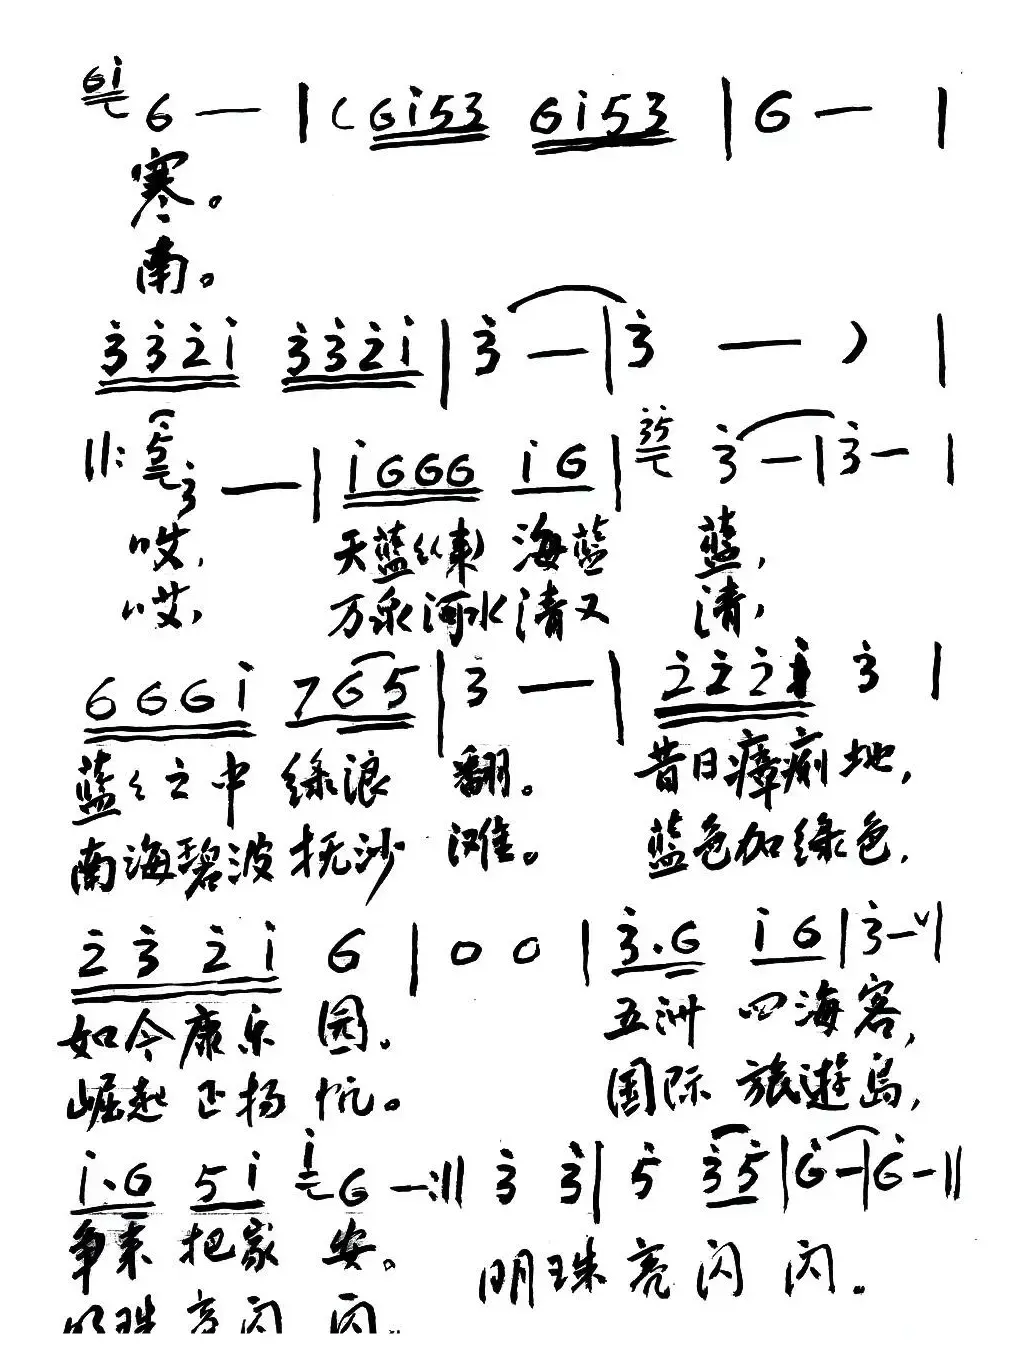 6i 6 — | ( 6i53 6i53 | 6 — |
寒。
南。
3321 3321 | 3 — | 3 — ) |
||: 5 3 — | i666 i6 | 35 3 — | 3 — |
哎, 天蓝 海蓝 蓝,
哎, 万泉河水清又 清,
666i 765 | 3 — | 222i 3 |
蓝〻之中 绿浪 翻。 昔日瘴痢地,
南海碧波抚沙 滩。 蓝色加绿色,
232i 6 | 0 0 | 3·6 i6 | 3 — ||
如今康乐 园. 五洲 四海客,
崛起正扬帆。 国际 旅遊岛,
i·6 5i i 6 — :|| 3 3 | 5 35 | 6 — | 6 — ||
争来 把家 安。 明珠亮闪 闪.
明珠 亮闪 闪.